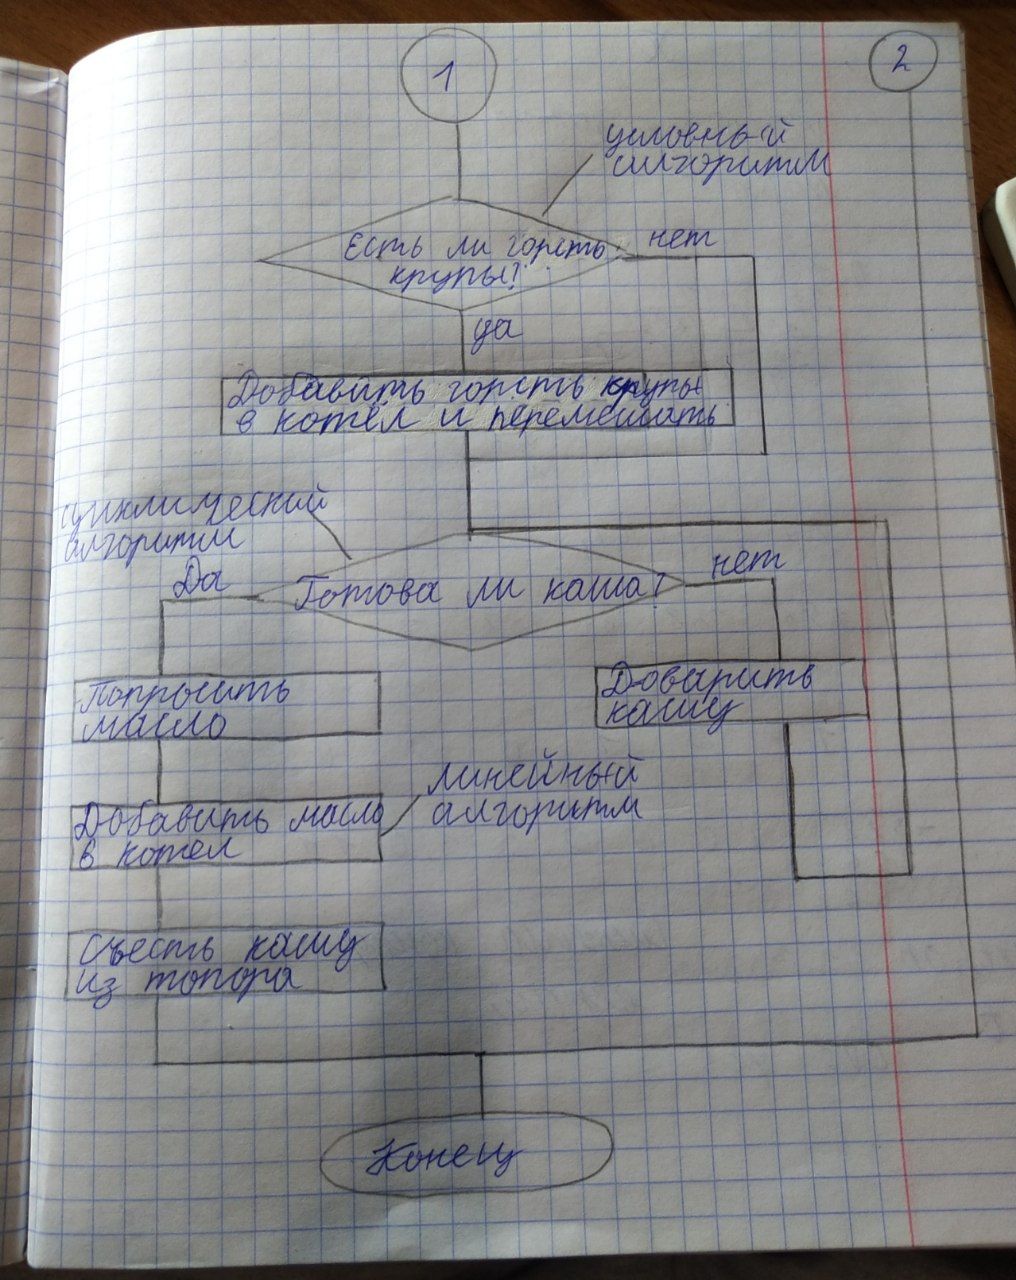 1
2
условный
алгоритм
Есть ли горсть
крупы?
нет
да
Добавить горсть крупы
в котёл и перемешать
циклический
алгоритм
Да
Готова ли каша?
нет
Попросить
масло
Доварить
кашу
линейный
алгоритм
Добавить масло
в котёл
Съесть кашу
из топора
Конец